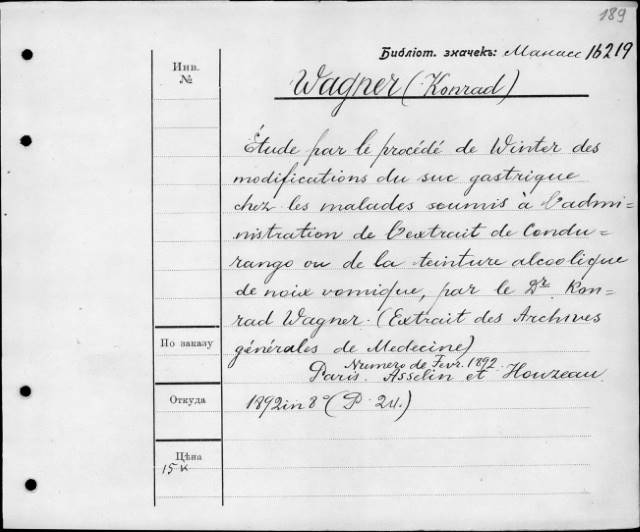 189
Библіот. значекъ: Манасс 16219
Инв.
№
Wagner (Konrad)
Étude par le procédé de Winter des
modifications du suc gastrique
chez les malades soumis à l'admi=
nistration de l'extrait de Condu=
rango ou de la teinture alcoolique
de noix vomique, par le Dr. Kon=
rad Wagner. (Extrait des Archives
générales de Medecine)
Numero de Fevr. 1892
Paris. Asselin et Houzeau.
1892 in 8° (P. 24.)
По заказу
Откуда
Цѣна
15 к